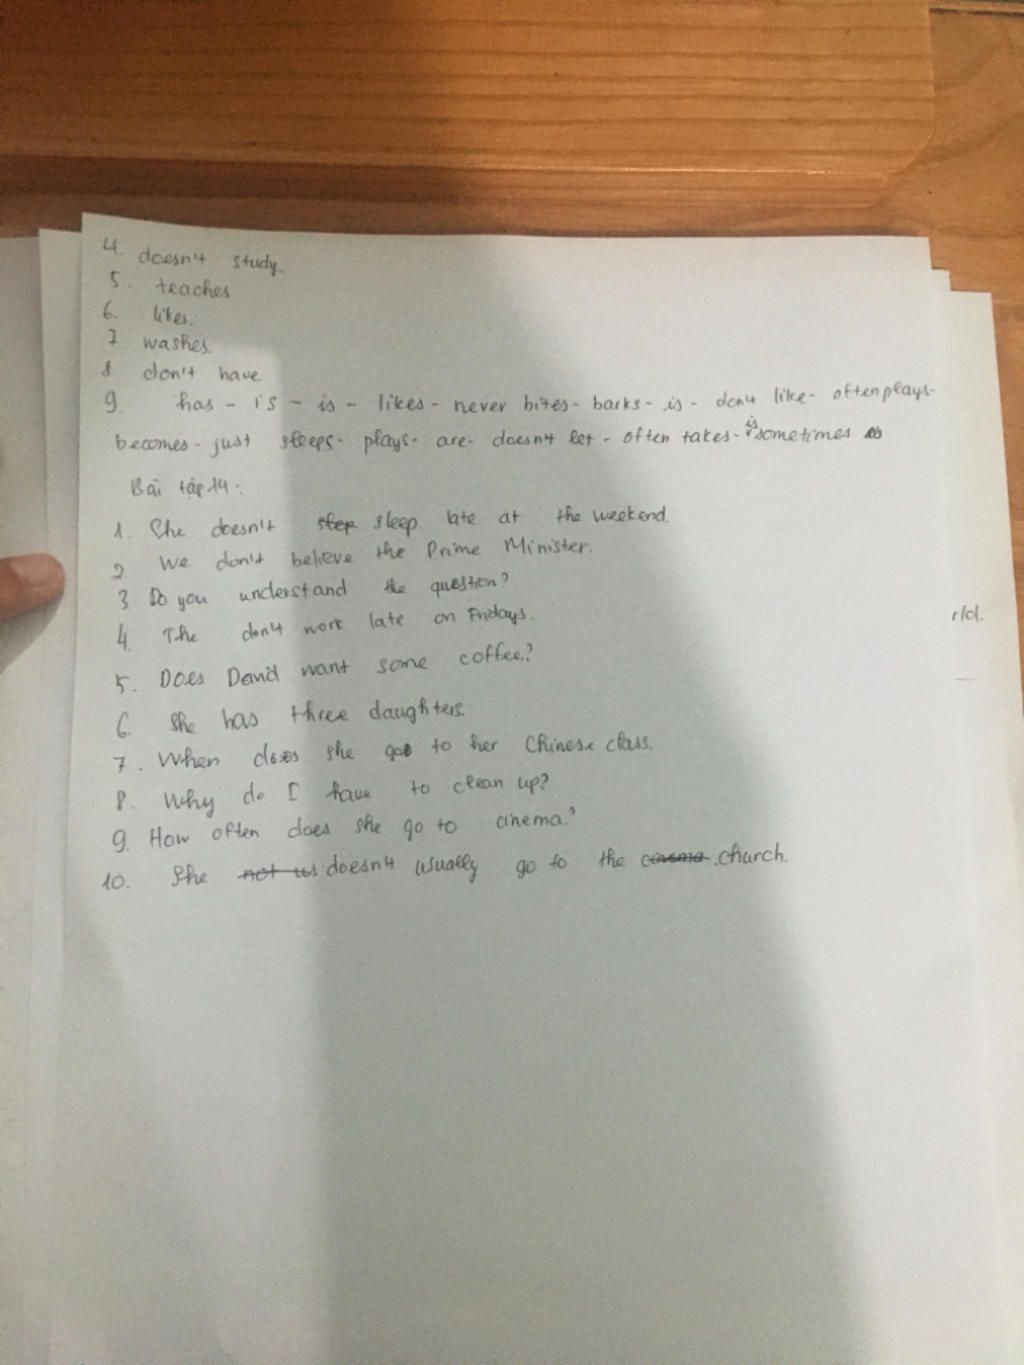 4. doesn't study
5. teaches
6. likes.
7 washes.
8 don't have
9. has - is - is - likes - never bites - barks - is - don't like - often plays -
becomes - just sleeps - plays - are - doesn't let - often takes - is sometimes
Bài tập 14:
1. She doesn't sleep late at the weekend.
2. We don't believe the Prime Minister.
3. Do you understand the question?
4. The don't work late on Fridays.
5. Does David want some coffee?
6. She has three daughters.
7. When does she go to her Chinese class.
8. Why do I have to clean up?
9. How often does she go to cinema?
10. She not us doesn't usually go to the cinema church.
r/d.